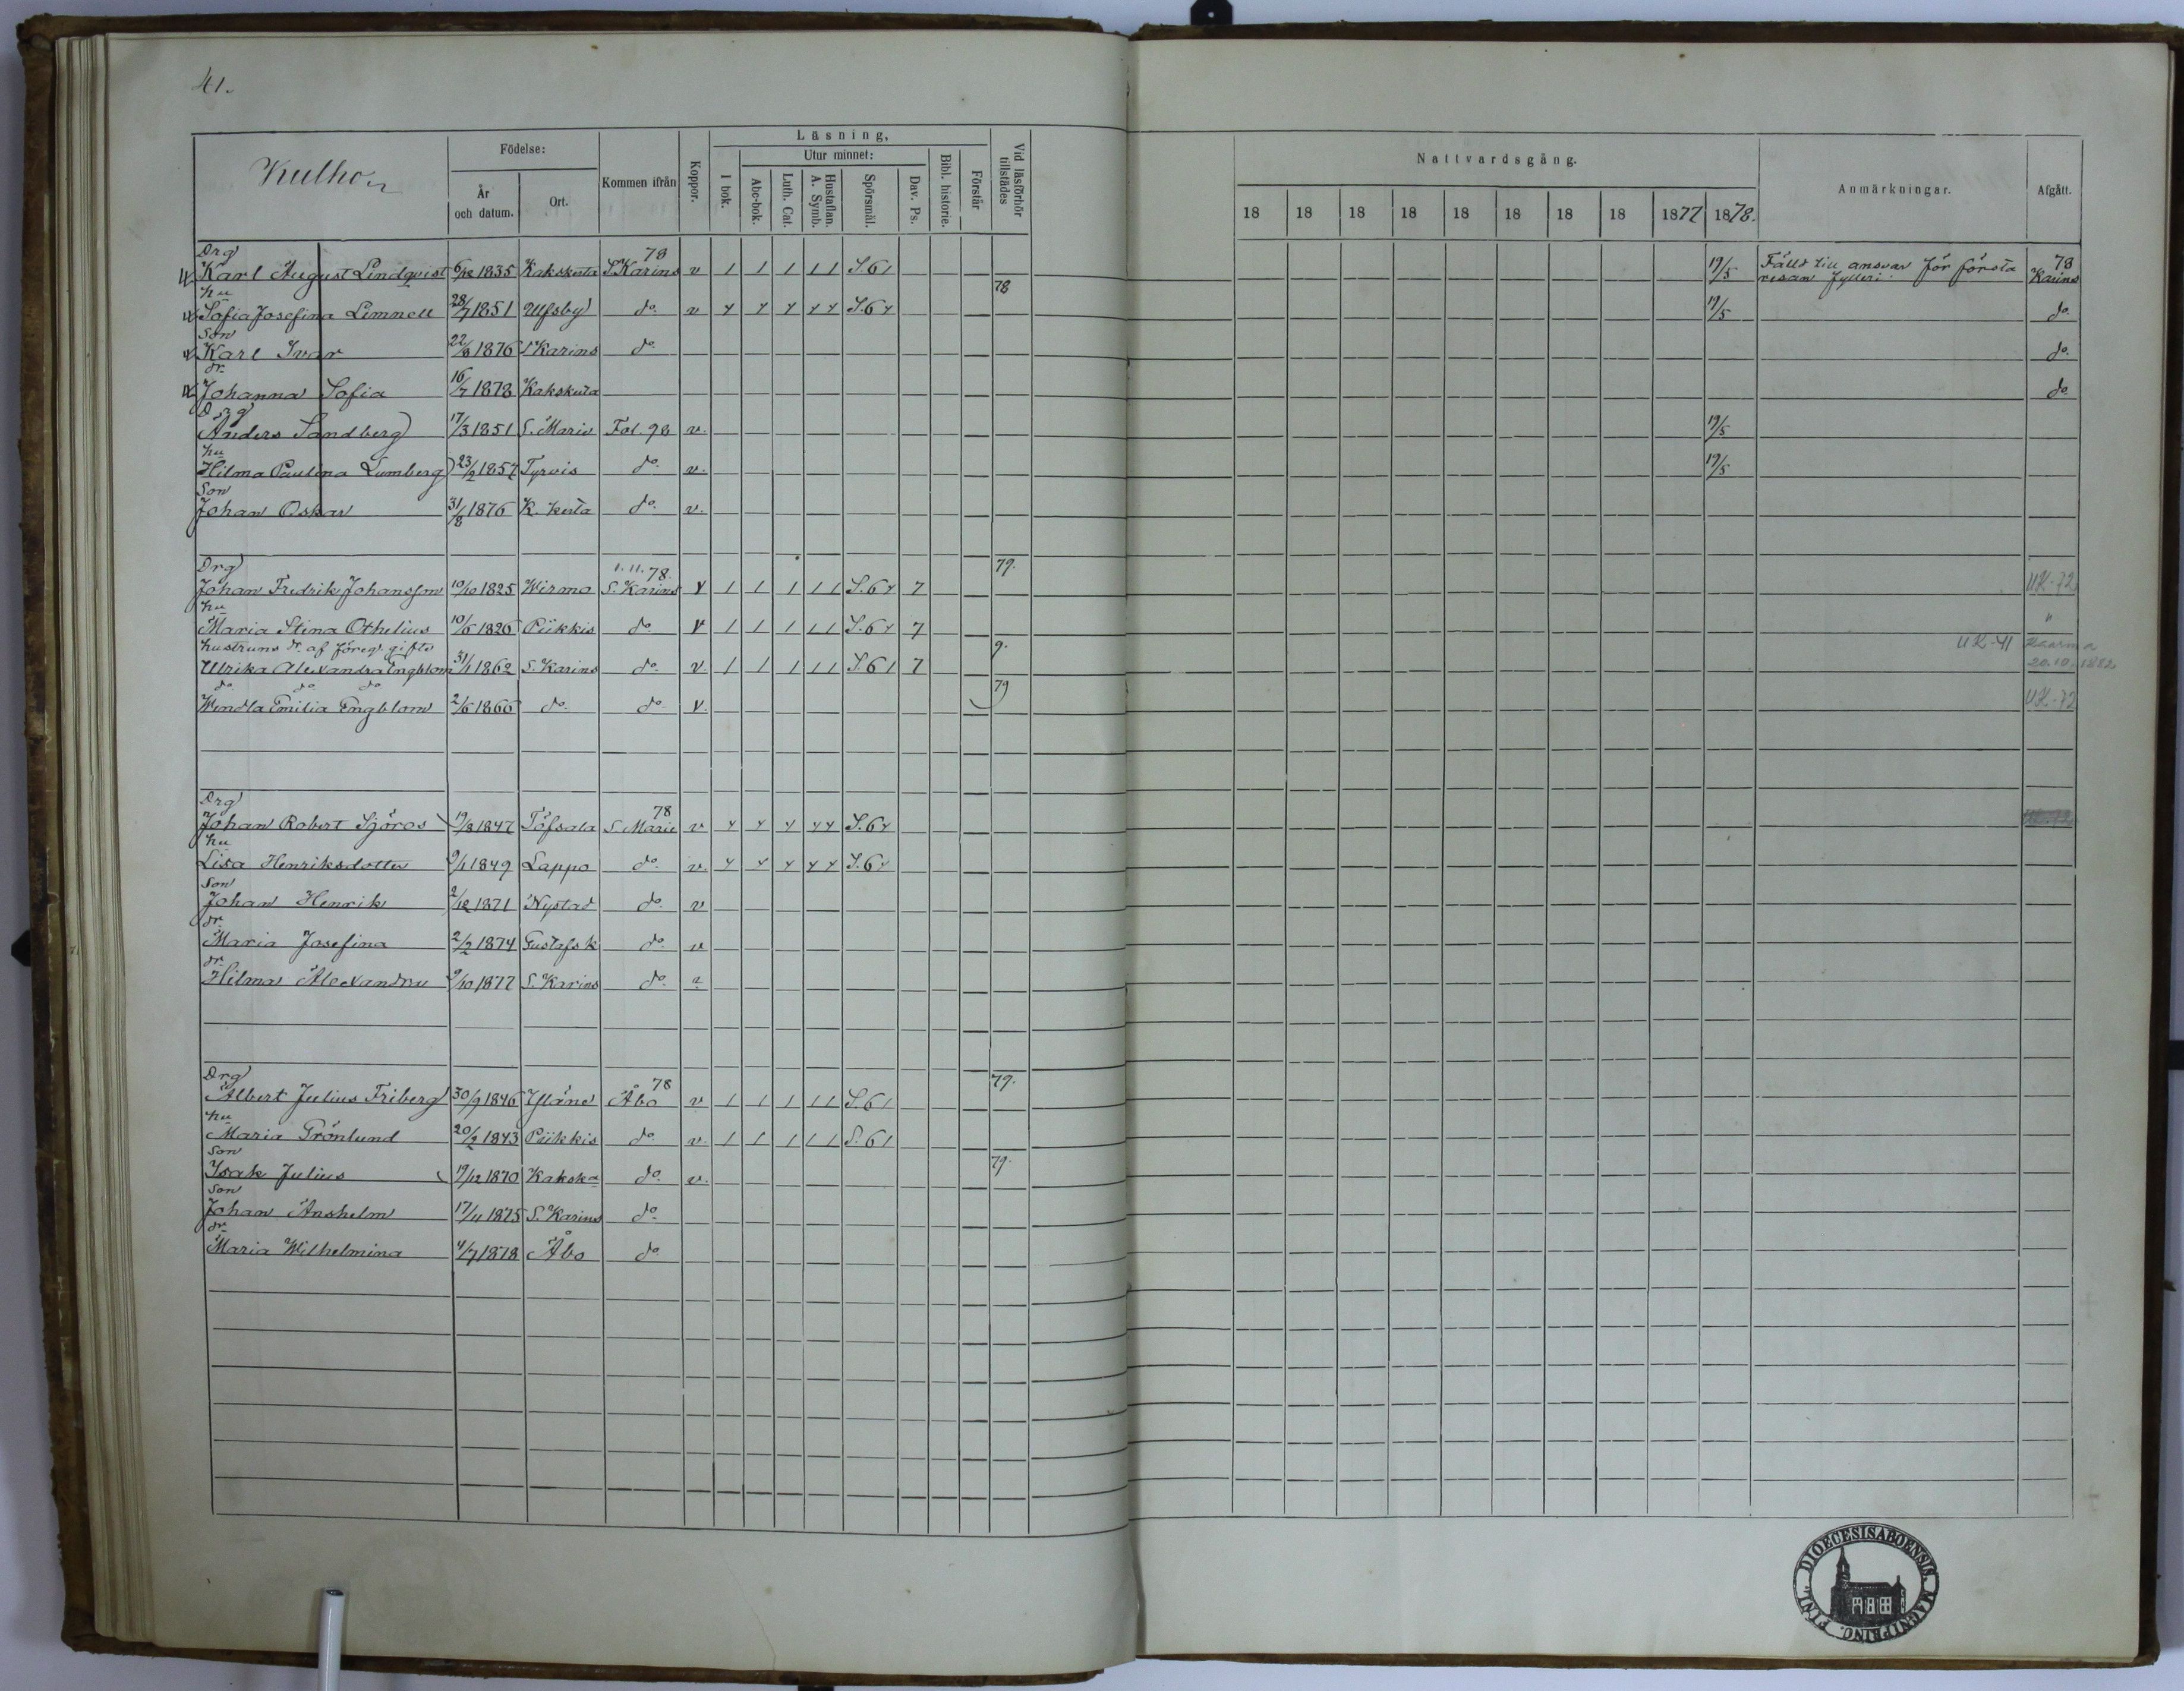 41.
Kulho
Födelse:
År och datum.
Ort.
Kommen ifrån
Koppor.
Läsning,
I bok.
Utur minnet:
Abc-bok.
Luth. Cat.
Hustaflan. A. Symb.
Spörsmål.
Dav. Ps.
Bibl. historie.
Förstår
Vid läsförhör tillstädes
Nattvardsgång.
18 18 18 18 18 18 18 18 1877 1878.
Anmärkningar.
Afgått.
Drg 78
Karl August Lindqvist 6/12 1835 Kakskerta S. Karins v 1 1 1 1 1 S. 6 1 19/5 Fälld till ansvar för första resan fylleri. 78 Karins
hu 78
Sofia Josefina Limnell 28/7 1851 Ulfsby do v S. 6 19/5 do
Son
Karl Ivar 22/8 1876 S Karins do do.
dr.
Johanna Sofia 16/7 1878 Kakskerta do
Drg
Anders Sandberg 17/3 1851 S. Marie Fol. 98 v. 19/5
hu
Hilma Paulina Lumberg 23/2 1857 Tyrvis do v. 19/5
Son
Johan Oskar 31/8 1876 K. kerta do v.
Drg 1.11.78. 79.
Johan Fredrik Johansson 10/10 1825 Wirmo S. Karins v 1 1 1 1 1 S. 6 7 UK-72
hu
Maria Stina Othelius 10/5 1826 Piikkis do v 1 1 1 1 1 S. 6 7 "
hustruns dr. af föreg. gifte 9.
Ulrika Alexandra Engblom 31/1 1862 S. Karins do v. 1 1 1 1 1 S. 6 1 7 UK-41 20.10.1882
do do do 79
Wendla Emilia Engblom 2/6 1866 do do v. UK-72
Drg 78
Johan Robert Sjöros 19/8 1847 Töfsala S. Marie v S. 6
hu
Lisa Henriksdotter 9/1 1849 Lappo do v. S. 6
Son
Johan Henrik 2/12 1871 Nystad do v
dr.
Maria Josefina 2/2 1874 Gustafs k do v
dr.
Hilma Alexandra 9/10 1877 S. Karins do
Drg 78 79.
Albert Julius Friberg 30/9 1846 Yläne Åbo v 1 1 1 1 1 S. 6 1
hu
Maria Grönlund 20/2 1843 Piikkis do v. 1 1 1 1 1 S. 6 1
Son 79.
Isak Julius 19/12 1870 Kaksk do v.
Son
Johan Anshelm 17/11 1875 S. Karins do
dr.
Maria Wilhelmina 4/7 1878 Åbo do
DIOECESIS ABOENSIS. MAGNI PRINC. FINL.